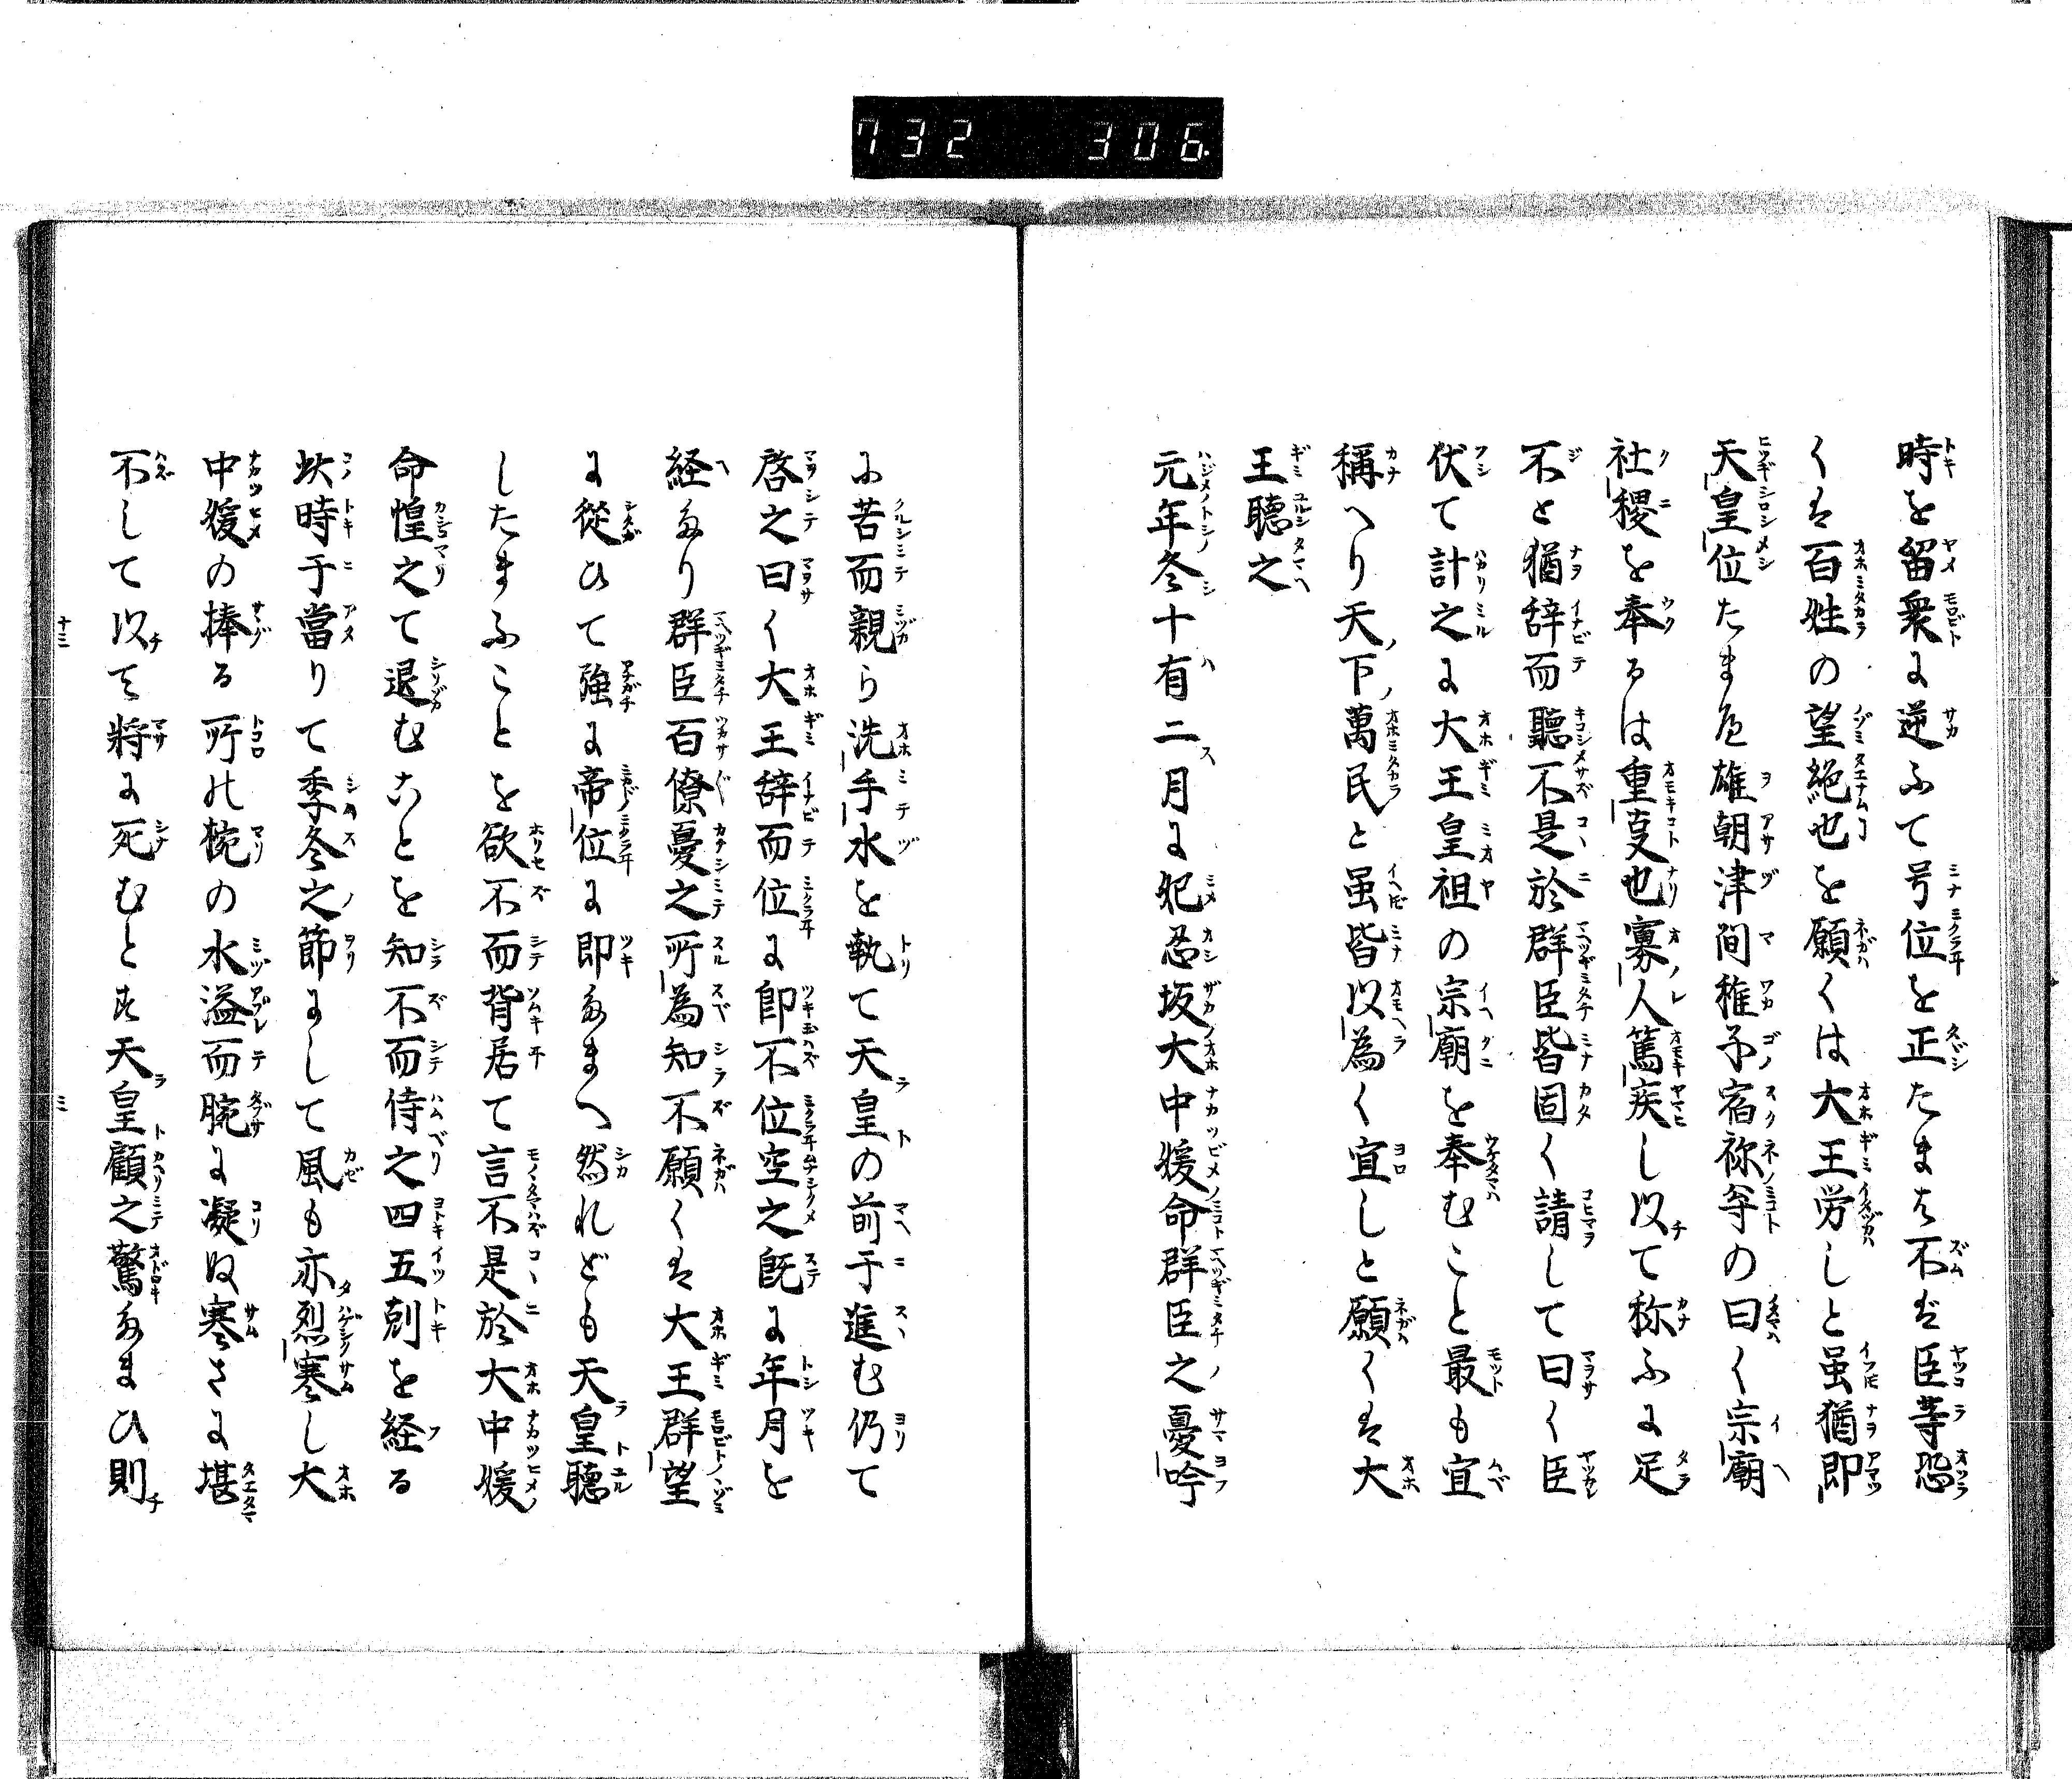 732 306
時を留衆に逆ふて号位を正たまは不ば臣等恐
くは百姓の望絶也を願くは大王労しと虽猶即
天皇位たまへ雄朝津間稚子宿祢尊の曰く宗廟
社稷を奉るは重事也寡人篤疾し以て称ふに足
不と猶辞而聽不是於群臣皆固く請して曰く臣
伏て計之に大王皇祖の宗廟を奉むこと最も宜
稱へり天下萬民と虽皆以為く宜しと願くは大
王聽之
元年冬十有二月に妃忍坂大中媛命群臣之憂吟
に苦而親ら洗手水を執て天皇の前于進む仍て
啓之曰く大王辞而位に即不位空之既に年月を
経たり群臣百僚憂之所為知不願くは大王群望
に從ひて強に帝位に即たまへ然れども天皇聽
したまふことを欲不而背居て言不是於大中媛
命惶之て退むことを知不而侍之四五剋を経る
此時于當りて季冬之節にして風も亦烈寒し大
中媛の捧る所の椀の水溢而腕に凝ぬ寒さに堪
不して以て將に死むとす天皇顧之驚たまひ則
十三 三